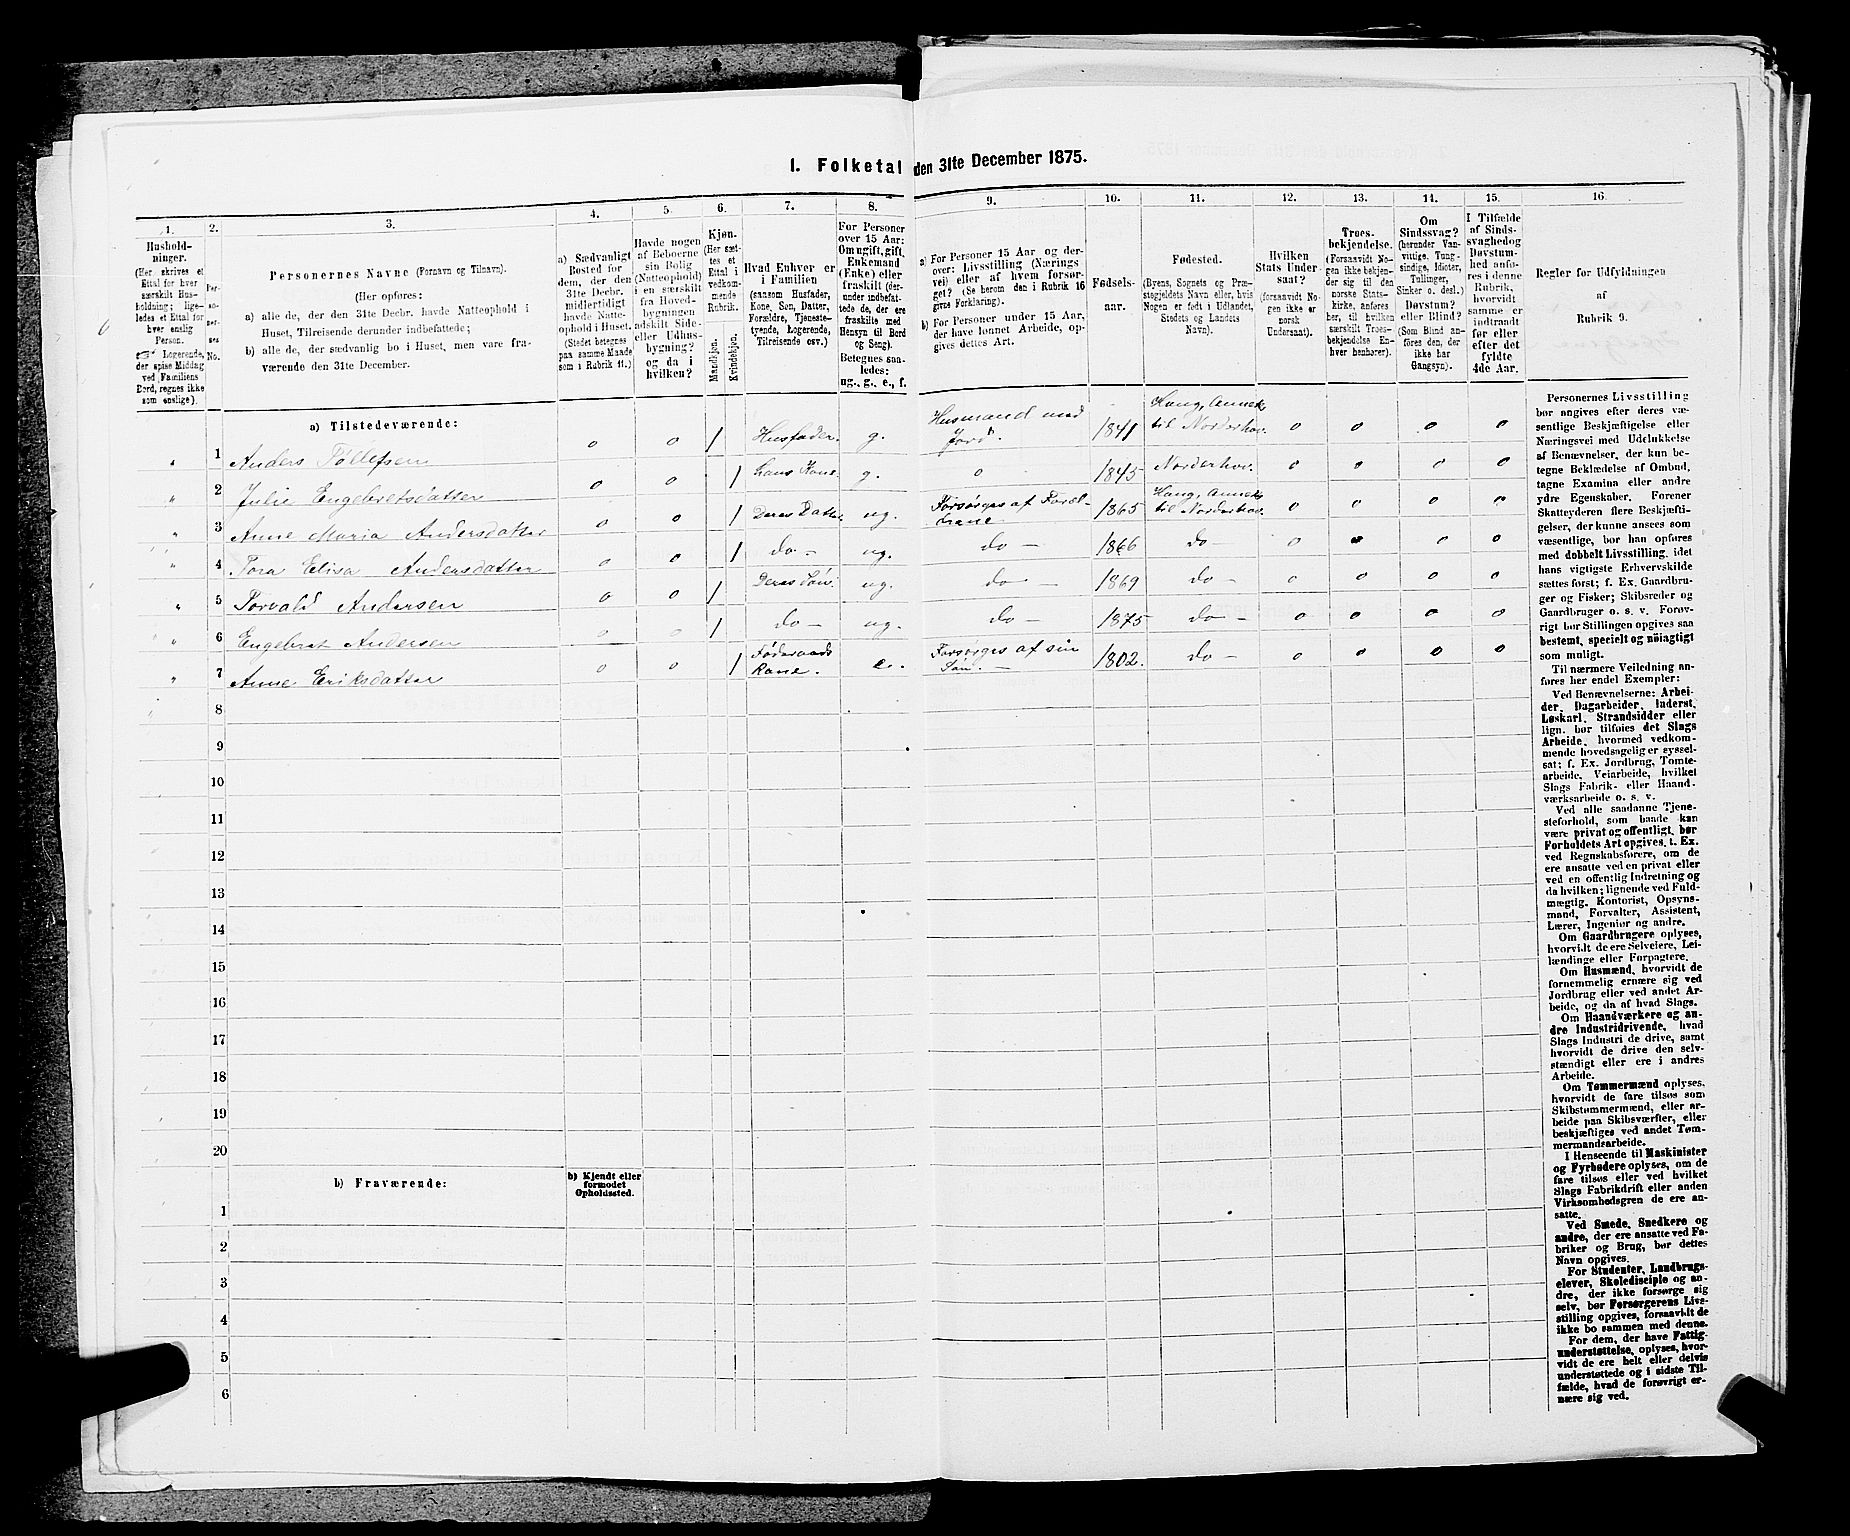 1. Folketal den 31te December 1875.
1.
2.
3.
4.
5.
6.
7.
8.
9.
10.
11.
12.
13.
14.
15.
16
Hushold-
ninger.
(Her skrives et
Ettal for hver
særskilt Hus-
holdning; lige-
ledes et Ettal for
hver enslig
Person.
☞ Logerende,
der spise Middag
ved Familiens
Bord, regnes ikke
som enslige).
Per-
so-
ner-
nes
No.
Personernes Navne (Fornavn og Tilnavn).
(Her opføres:
a) alle de, der den 31te Decbr. havde Natteophold i
Huset, Tilreisende derunder indbefattede;
b) alle de, der sædvanlig bo i Huset, men vare fra-
værende den 31te December.
a) Sædvanligt
Bosted for
dem, der den
31te Decbr.
midlertidigt
havde Natte-
ophold i Huset.
(Stedet betegnes
paa samme Maade
som i Rubrik 11.)
Havde nogen
af Beboerne
sin Bolig
(Natteophold)
i en særskilt
fra Hoved-
bygningen
adskilt Side-
eller Udhus-
bygning?
og da i
hvilken?
Kjøn.
(Her sæt-
tes et
Ettal i
vedkom-
mende
Rubrik.
Mandkjøn.
Kvindekjøn.
Hvad Enhver er
i Familien
(saasom Husfader,
Kone, Søn, Datter,
Forældre, Tjeneste-
tyende, Logerende,
Tilreisende osv.)
For Personer
over 15 Aar:
Om ugift, gift,
Enkemand
(Enke) eller
fraskilt (der-
under indbefat-
tede de, der ere
fraskilte med
Hensyn til Bord
og Seng).
Betegnes saa-
ledes:
ug., g., e., f.
a) For Personer 15 Aar og der-
over: Livsstilling (Nærings-
vei) eller af hvem forsør-
get? (Se herom den i Rubrik 16
givne Forklaring).
b) For Personer under 15 Aar,
der have lønnet Arbeide, op-
gives dettes Art.
Fødsels-
aar.
Fødested.
(Byens, Sognets og Præ-
stegjeldets Navn eller, hvis
Nogen er født i Udlandet,
Stedets og Landets
Navn).
Hvilken
Stats Under-
saat?
(forsaavidt No-
gen ikke er
norsk
Undersaat).
Troes-
bekjendelse.
(Forsaavidt No-
gen ikke bekjen-
der sig til den
norske Stats-
kirke, anføres
her, til hvilken
særskilt Troes-
bekjendelse En-
hver henhører).
Om
Sindssvag?
(herunder Van-
vittige, Tung-
sindige, Idioter,
Tullinger,
Sinker o. desl.)
Døvstum?
eller Blind?
(Som Blind an-
føres den, der
ikke har
Gangsyn).
I Tilfælde
af Sinds-
svaghed og
Døvstum-
hed anfø-
res i denne
Rubrik,
hvorvidt
samme er
indtraadt
før eller
efter det
fyldte
4de Aar.
Regler for Udfyldningen
af
Rubrik 9.
a) Tilstedeværende:
1 Anders Tollefsen 0 0 1 Husfader. g. Husmand med Jord. 1841 Haug, Annek til Norderhov. 0 0 0 0
2 Julie Engebretsdatter 0 0 1 hans Kone g. 0 1845 Norderhov. 0 0 0 0
3 Anne Maria Andersdatter 0 0 1 Deres Datter ug. Forsørges af Foræl- 1865 Haug, Annek til Norderhov. 0 0 0 0
4 Tora Elisa Andersdatter 0 0 1 do — ug. do — 1866 do — 0 0 0 0
5 Torvald Andersen 0 0 1 Deres Søn. ug. do — 1869 do — 0 0 0 0
6 Engebret Andersen 0 0 1 do — ug. do — 1875 do — 0 0 0 0
7 Anne Eriksdatter 0 0 1 Føderaads Kone. e. Forsørges af sin Søn. — 1802. do — 0 0 0 0
8
9
10
11
12
13
14
15
16
17
18
19
20
b) Fraværende:
b) Kjendt eller
formodet
Opholdssted.
1
2
3
4
5
6
Personernes Livsstilling
bør angives efter deres væ-
sentlige Beskjæftigelse eller
Næringsvei med Udelukkelse
af Benævnelser, der kun be-
tegne Beklædelse af Ombud,
tagne Examina eller andre
ydre Egenskaber. Forener
Skatteyderen flere Beskjæfti-
gelser, der kunne ansees som
væsentlige, bør han opføres
med dobbelt Livsstilling, idet
hans vigtigste Erhvervskilde
sættes først; f. Ex. Gaardbru-
ger og Fisker; Skibsreder og
Gaardbruger o. s. v. Forøv-
rigt bør Stillingen opgives saa
bestemt, specielt og nøiagtigt
som muligt.
Til nærmere Veiledning an-
føres her endel Exempler:
Ved Benævnelserne: Arbei-
der, Dagarbeider, Inderst,
Løskarl, Strandsidder eller
lign. bør tilføies det Slags
Arbeide, hvormed vedkom-
mende hovedsagelig er syssel-
sat; f. Ex. Jordbrug, Tomte-
arbeide, Veiarbeide, hvilket
Slags Fabrik- eller Haand-
værksarbeide o. s. v.
Ved alle saadanne Tjene-
steforhold, som baade kan
være privat og offentligt, bør
Forholdets Art opgives, t. Ex.
ved Regnskabsførere, om de
ere ansatte ved en privat eller
ved en offentlig Indretning og
da hvilken; lignende ved Fuld-
mægtig, Kontorist, Opsyns-
mand, Forvalter, Assistent,
Lærer, Ingeniør og andre.
Om Gaardbrugere oplyses,
hvorvidt de ere Selveiere, Lei-
lændinge eller Forpagtere.
Om Husmænd, hvorvidt de
fornemmelig ernære sig ved
Jordbrug eller ved andet Ar-
beide, og da af hvad Slags.
Om Haandværkere og an-
dre Industridrivende, hvad
Slags Industri de drive, samt
hvorvidt de drive den selv-
stændigt eller ere i andres
Arbeide.
Om Tømmermænd oplyses,
hvorvidt de fare tilsøs som
Skibstømmermænd, eller ar-
beide paa Skibsværfter, eller
beskjæftiges ved andet Tøm-
mermandsarbeide.
I Henseende til Maskinister
og Fyrbødere oplyses, om de
fare tilsøs eller ved hvilket
Slags Fabrikdrift eller anden
Virksomhedsgren de ere an-
satte.
Ved Smede, Snedkere og
andre, der ere ansatte ved Fa-
briker og Brug, bør dettes
Navn opgives.
For Studenter, Landbrugs-
elever, Skoledisciple og an-
dre, der ikke forsørge sig
selv, bør Forsørgerens Livs-
stilling opgives, forsaavidt de
ikke bo sammen med denne.
For dem, der have Fattig-
understøttelse, oplyses, hvor-
vidt de ere helt eller delvis
understøttede og i sidste Til-
fælde, hvad de forøvrigt er-
nære sig ved.